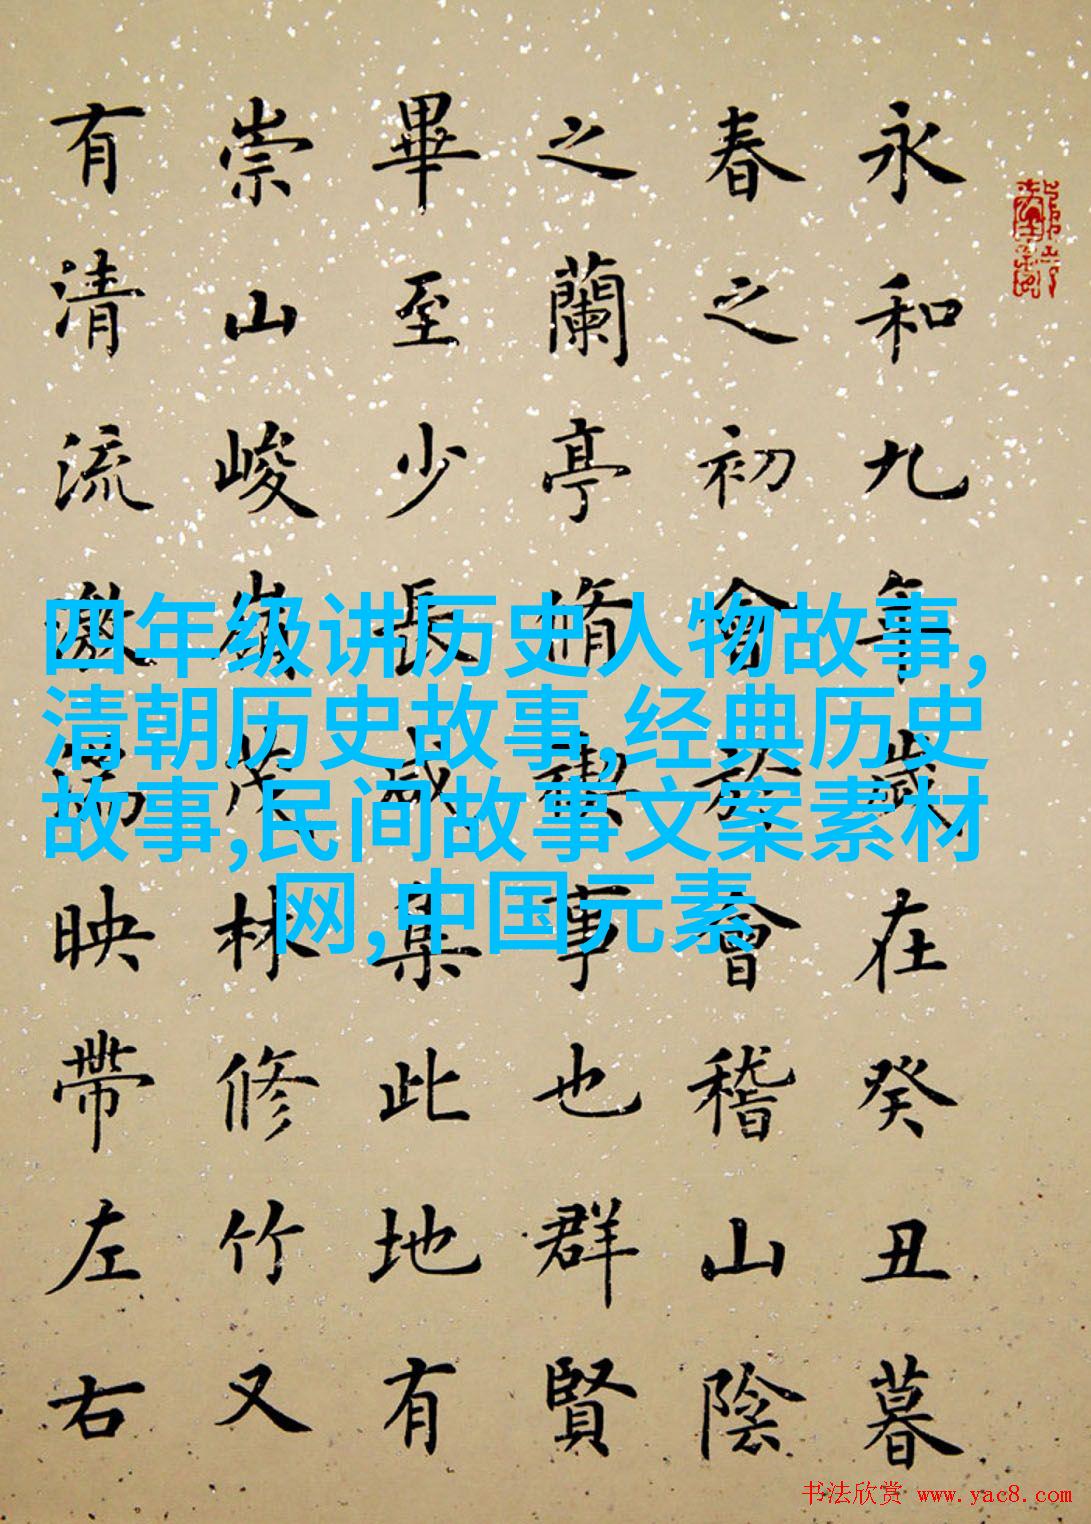 永和九年歲在癸丑暮
春之初會於會稽山陰
之蘭亭脩禊事也群賢
畢至少長咸集此地有
崇山峻嶺茂林修竹又
有清流激湍映帶左右
四年级讲历史人物故事,
清朝历史故事,经典历史
故事,民间故事文案素材
网,中国元素
书法欣赏 www.yac8.com